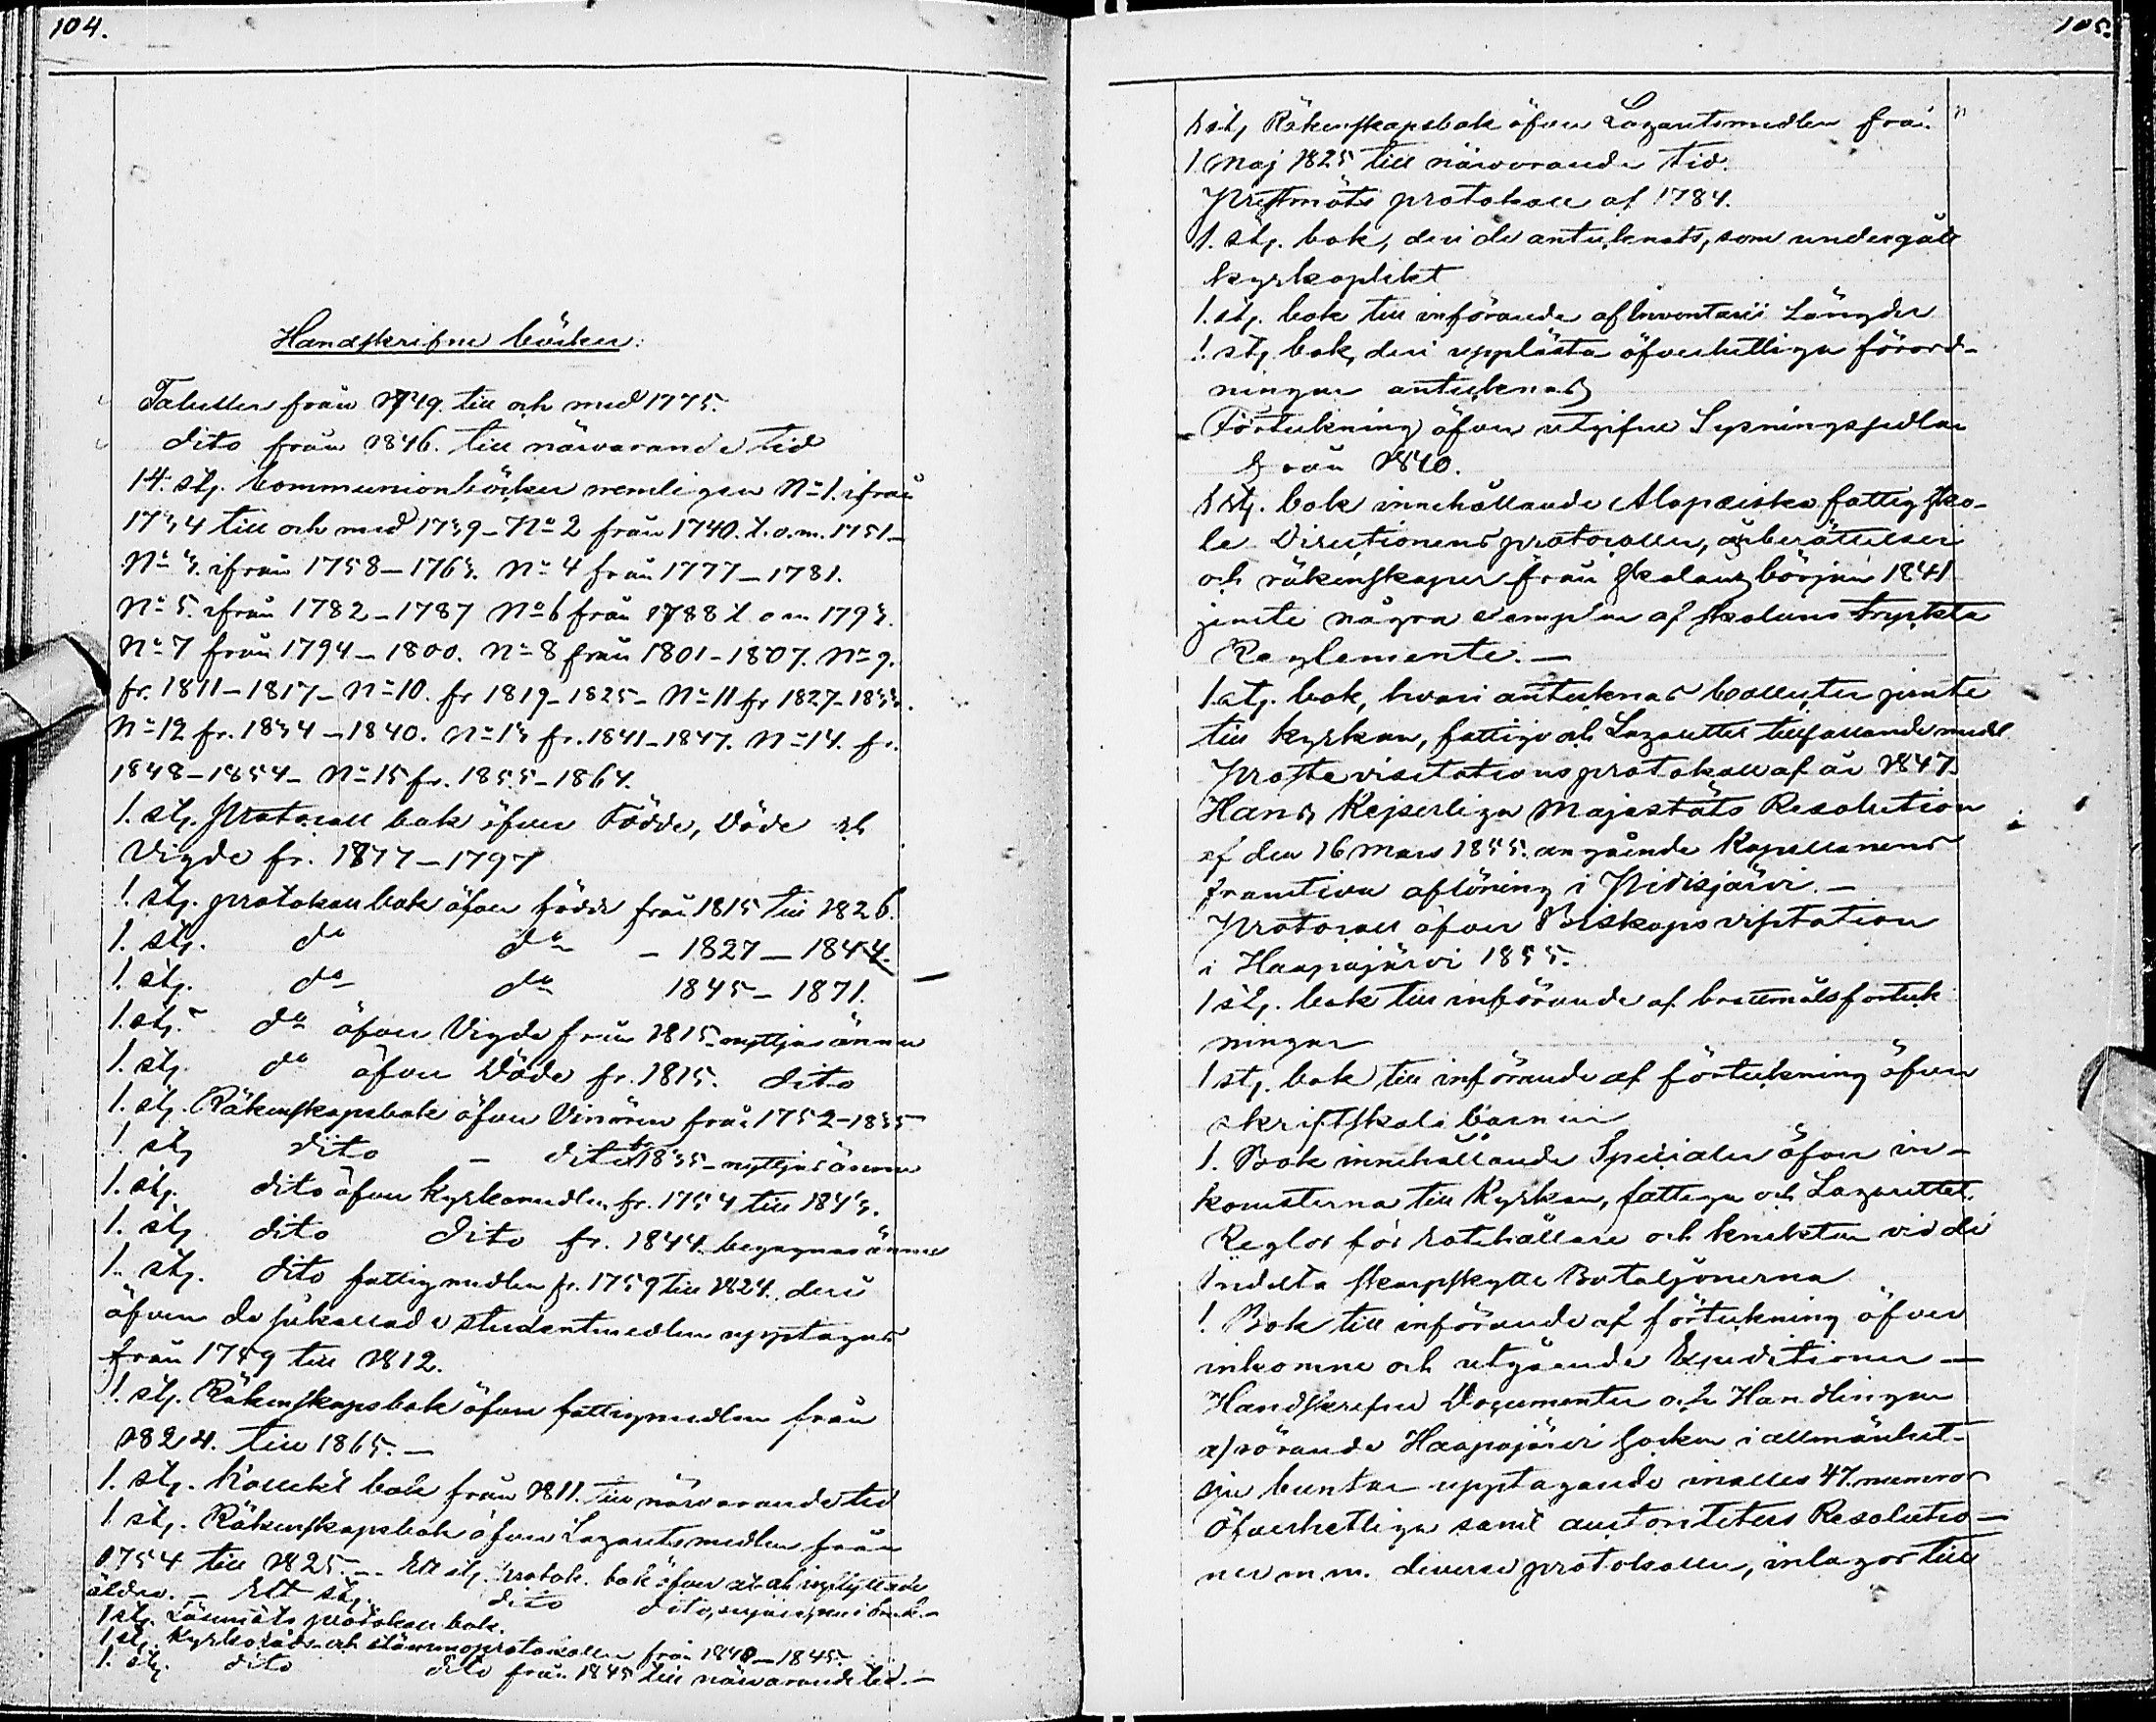 104.
Handskrifne böcker:
Tabeller från 1749. till och med 1775.
dito från 1846. till närvarande tid
14. st. Communionböcker nemligen No 1. ifrån
1734 till och med 1739 – No 2 från 1740. t.o.m. 1751 –
No 3. ifrån 1758 – 1763. No 4 från 1777 – 1781.
No 5. ifrån 1782 – 1787 No 6 från 1788 t. o m 1793.
No 7 från 1794 – 1800. No 8 från 1801 – 1807. No 9.
fr. 1811 – 1817 – No 10. fr 1819 – 1825 – No 11 fr 1827 – 1833.
No 12 fr. 1834 – 1840. No 13 fr. 1841 – 1847. No 14. fr.
1848 – 1854 – No 15 fr. 1855 – 1864.
1. st. Protocoll bok öfver Födde, Döde och
Vigde fr. 1777 – 1797
1. st. protokoll bok öfver födde från 1815 till 1826.
1. st. do do – 1827 – 1844.
1. st. do do 1845 – 1871. –
1. st. do öfver Vigde från 1815 – nyttjas ännu
1. st. do öfver Döde fr. 1815. dito
1. st. Räkenskapsbok öfver från 1752 – 1835
1 st dito – dito fr 1835 – nyttjas ännu
1. st. dito öfver Kyrkomedlen fr. 1754 till 1843.
1. st. dito dito fr. 1844. begagnas ännu
1. st. dito fattigmedlen fr. 1759 till 1824. deri
äfven de såkallade studentmedlen upptagas
från 1789 till 1812.
1. st. Räkenskapsbok öfver fattigmedlen från
1824. till 1865. –
1. st. Kollekt bok från 1811. till närvarande tid
1 st. Räkenskapsbok öfver Lazaretsmedlen från
1754 till 1825. – Ett st. protok. bok öfver ut och inflyttade
äldre. – Ett st. dito dito,
1 st. Läsemöts protokoll bok.
1 st. Kyrkoråds och stämmoprotocoller från 1840 – 1845.
1. st. dito dito från 1845 till närvarande tid. –
105.
1 st. Räkenskapsbok öfver Lazaretsmedlen från
1 Maj 1825 till närvarande tid.
Prestmöts protokoll af 1784.
1. st. bok, deri de antecknats, som undergått
kyrkoplikt
1. st. bok till införande af Inventarii Längder
1. st. bok, deri upplästa öfverhetliga förord-
ningar antecknas
Förteckning öfver utgifne Lysningssedlar
från 1840.
1 st. bok innehållande Alopæiska fattig sko-
le Directionens protocoller, årsberättelser
och räkenskaper från skolans början 1841
jemte några exemplar af skolans tryckta
Reglemente. –
1. st. bok, hvari antecknas Collecter jemte
till kyrkan, fattige och Lazarettet tillfallande medel
Proste visitations protokoll af år 1847.
Hans Kejserliga Majestäts Resolution
af den 16 Mars 1855. angående Kapellanens
framtida aflöning i Pidisjärvi. –
Protocoll öfver Biskops visitation
i Haapajärvi 1855.
1 st. bok till införande af brottmåls förteck
ningar
1 st. bok till införande af förteckning öfver
skriftskole barnen
1. Bok innehållande Specialer öfver in-
komsterna till Kyrkan, fattiga och Lazarettet.
Reglor för rotehållare och knektar vid de
Indelta skarpskytte Bataljonerna
1. Bok till införande af förteckning öfver
inkomne och utgående Expeditioner –
Handskrifne Documenter och Handlingar
a) rörande Haapajärvi socken i allmänhet –
buntar upptagande inalles 47. numror
Öfverhetliga samt auctoriteters Resolutio-
ner m.m. diverse protokoller, inlagor till